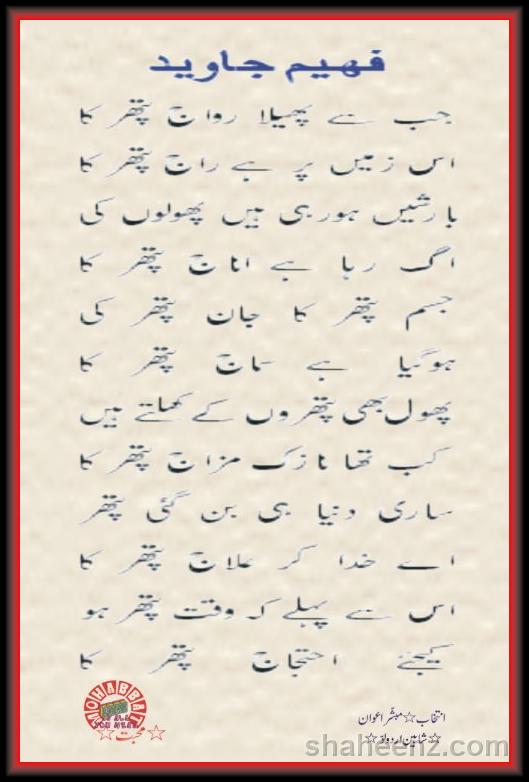 فہیم جاوید
جب سے پھیلا رواج پتھر کا
اس زمیں پر ہے راج پتھر کا
بارشیں ہورہی ہیں پھولوں کی
اگ رہا ہے اناج پتھر کا
جسم پتھر کا جان پتھر کی
ہوگیا ہے سماج پتھر کا
پھول بھی پتھروں کے کھلتے ہیں
کب تھا نازک مزاج پتھر کا
ساری دنیا ہی بن گئی پتھر
اے خدا کر علاج پتھر کا
اس سے پہلے کہ وقت پتھر ہو
کیجئے احتجاج پتھر کا
MOHABBAT
IS ALL
YOU NEED
☆ محبت ☆
انتخاب☆مبشر اعوان
☆شاہین اردولہ☆
shaheenz.com